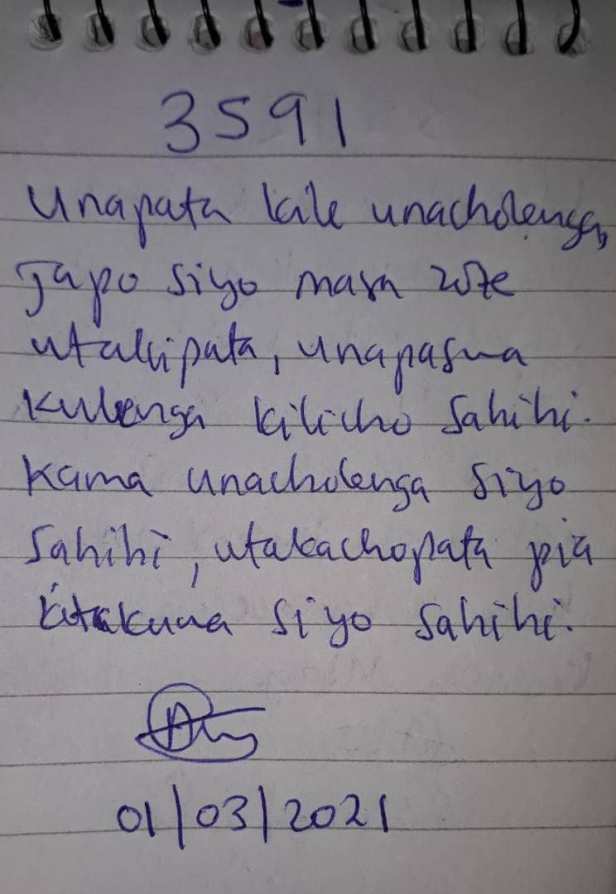 3591
Unapata kile unacholenga,
Japo siyo mara zote
utakipata, unapaswa
kulenga kilicho sahihi.
Kama unacholenga siyo
sahihi, utakachopata pia
kitakuwa siyo sahihi.
01/03/2021